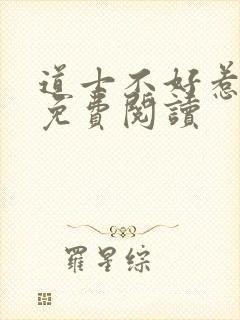 道士不好惹
免費閱讀
羅星綜